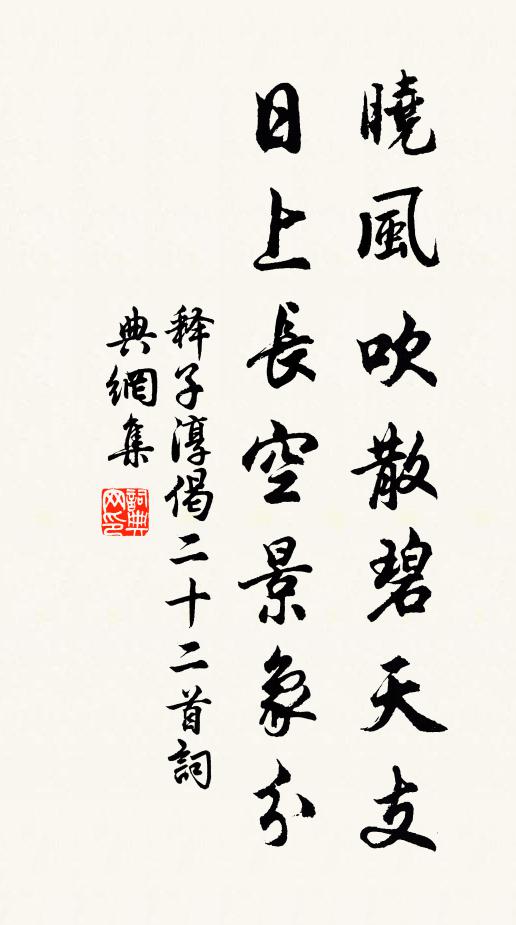 曉風吹散碧天支
日上長空景象分
释子淳偈二十二首詞
典網集
詞典
网印